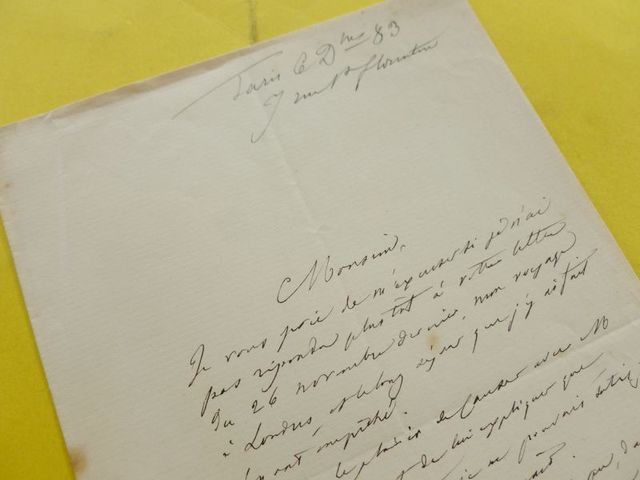 Paris 6 Dbre 83
7 rue St florentin
Monsieur,
Je vous prie de m'excuser si je n'ai
pas répondu plus tôt à votre lettre
du 26 novembre dernier, mon voyage
à Londres, et le long séjour que j'y ai fait
m'ont empêché.
le plaisir de causer avec M
et de lui expliquer que
je ne pouvais